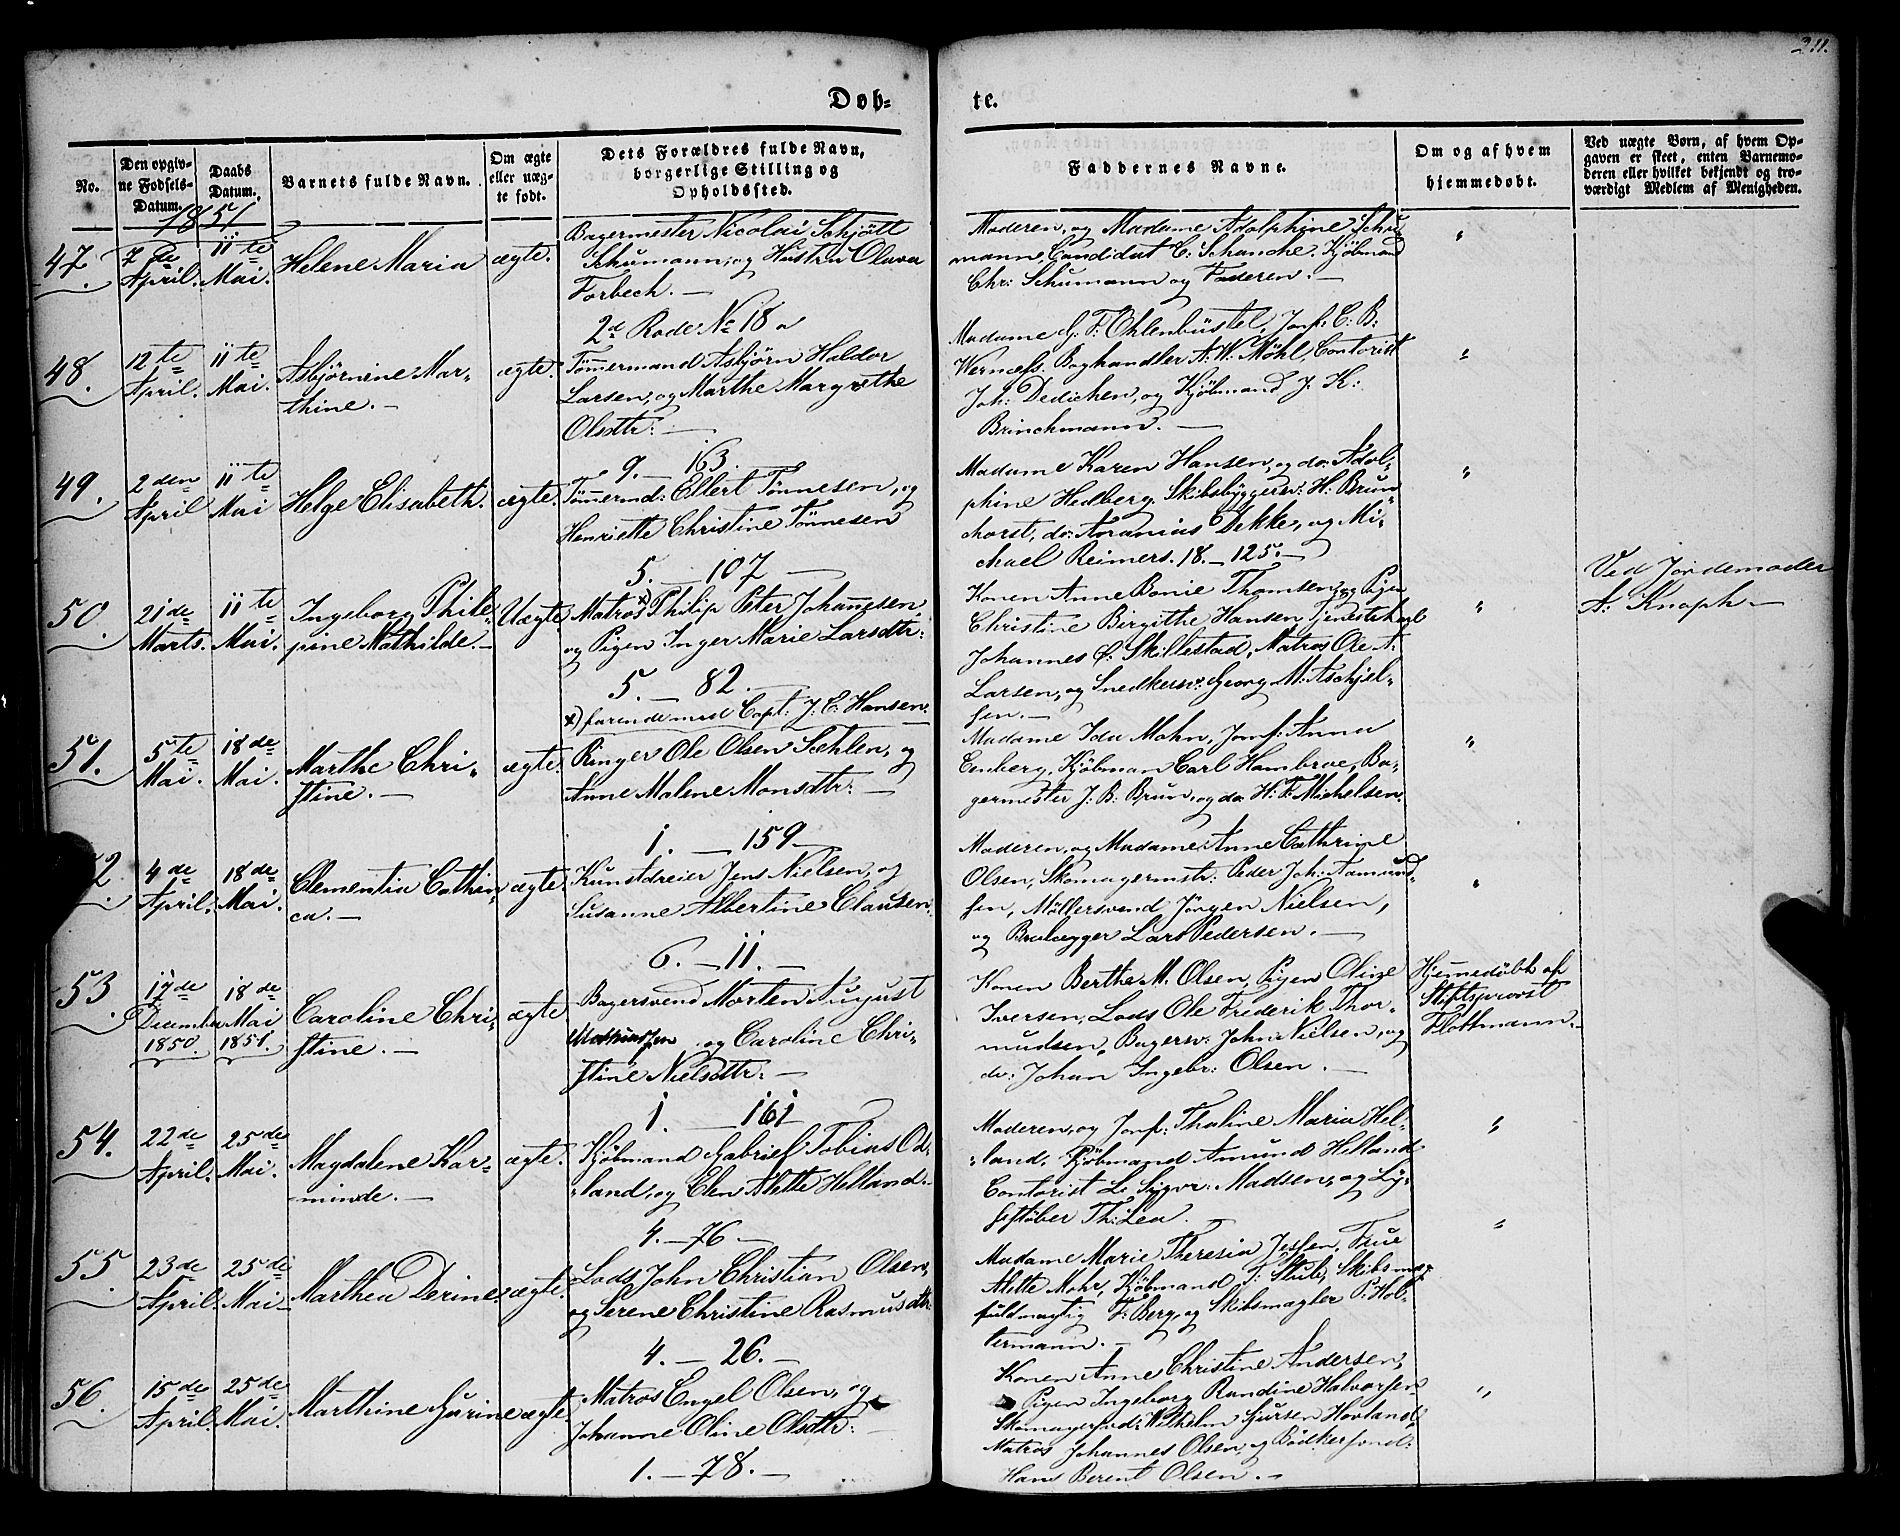 211.
Døb-
te.
No.
Den opgiv-
ne Fødsels-
Datum.
Daabs
Datum.
Barnets fulde Navn.
Om ægte
eller uæg-
te født.
Dets Forældres fulde Navn,
borgerlige Stilling og
Opholdssted.
Faddernes Navne.
Om og af hvem
hjemmedøbt.
Ved uægte Børn, af hvem Op-
gaven er skeet, enten Barnemo-
deren eller hvilket bekjendt og tro-
værdigt Medlem af Menigheden.
1851
47.
7de
April.
11te
Mai.
Helene Maria
ægte.
Bagermester Nicolai Schjøtt
Schumann, og Hustru Olava
Forbech. —
2d Rode No 18 a
Moderen, og Madame Adolphine Schu-
mann, Candidat C: Schanche, Kjöbmand
Chr: Schumann og Faderen. —
"
48.
12te
April.
11te
Mai.
Asbjørnine Mar-
thine. —
ægte.
Tömmermand Asbjørn Haldor
Larsen, og Marthe Margrethe
Olsdtr: —
9. — 163.
Madame G. F: Ohlenbüstel, Jomf: C: B:
Wernefs. Boghandler A: W: Möhl, Contorist
Joh: Dedichen, og Kjöbmand J. K:
Brinchmann. —
"
49.
2den
April
11te
Mai
Helge Elisabeth.
ægte.
Tömermd: Ellert Tönnesen, og
Henriette Christine Tönnesen
5. — 107 —
Madame Karen Hansen, og do: Adol-
phine Hedberg. Skibsbyggersv: H: Brun-
chorst, do: Ananias Dekke, og Mi-
chael Reimers. 18. — 125. —
"
50.
21de
Marts.
11te
Mai.
Ingeborg Phile-
pine Mathilde. —
Uægte.
Matros x) Philip Peter Johannesen
og Pigen Inger Marie Larsdtr:
5. — 82. —
x) farende med Capt: J: C: Hansen.
Konen Anne Bonie Thomsen, og Pigen
Christine Birgithe Hansen Tjenestekarl
Johannes O: Skillestad, Matros Ole A:
Larsen, og Snedkersv: Georg M: Aschjel-
sen. —
"
Ved Jordemoder
A: Knoph —
51.
5te
Mai.
18de
Mai.
Marthe Chri-
stine. —
ægte.
Ringer Ole Olsen Sæhlen, og
Anne Malene Monsdtr: —
1. — 159.
Madame Ida Mohn, Jomf: Anna
Enberg, Kjöbman Carl Hambroe, Ba-
germester J: B: Brun, og do H: F: Michelsen.
"
2.
4de
April.
18de
Mai.
Clementia Cathin-
ca. —
ægte.
Kunstdreier Jens Nielsen, og
Susanne Albertine Clausen.
6. — 11. —
Moderen, og Madame Anne Cathrine
Olsen, Skomagermstr: Peder Joh: Aamund-
sen, Møllersvend Jörgen Nielsen,
og Brolægger Lars Pedersen. —
"
53.
17de
December
1850.
18de
Mai
1851.
Caroline Chri-
stine. —
ægte
Bagersvend Morten August
og Caroline Chri-
stine Nielsdtr: —
1. — 161
Konen Berthe M. Olsen, Pigen Oline
Iversen, Lods Ole Frederik Thor-
mudsen, Bagersv: John Nielsen, og
do: Johan Ingebr: Olsen. —
Hjemmedöbt af
Stiftsprovst
Flottmann. —
54.
22de
April.
25de
Mai.
Magdalene Kar-
minde. —
ægte.
Kjöbmand Gabriel Tobias Od-
land, og Elen Alette Helland. —
4. — 76 —
Moderen, og Jomf: Thaline Maria Hel-
land, Kjöbmand Amund Helland
Contorist L: Sigvr: Madsen, og Ly-
sestöber Th: Lea. —
"
55.
23de
April.
25de
Mai —
Marthea Derine.
ægte.
Lods John Christian Olsen,
og Serene Christine Rasmusdtr
4. — 26. —
Madame Marie Theresia Jessen, Frue
Alette Mohr, Kjöbmand J: Stub, Skibsmgl
fuldmægtig F: Berg, og Skibsmægler P: Hol-
termann. —
"
56.
15de
April.
25de
Mai.
Marthine Gurine
ægte.
Matros Engel Olsen, og
Johanne Oline Olsdtr: —
1. — 78. —
Konen Anne Christine Andersen,
Pigen Ingeborg Randine Halvorsen
Skomagersvd: Wilhelm Sjursen Hovland,
Matros Johannes Olsen, og Bödkersvnd:
Hans Berent Olsen. —
"